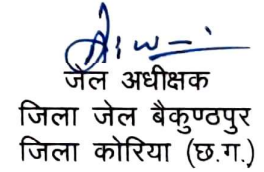 जेल अधीक्षक
जिला जेल बैकुण्ठपुर
जिला कोरिया (छ.ग.)